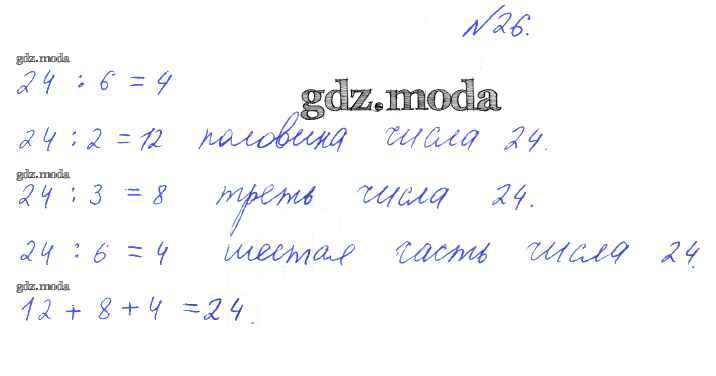 №26.
gdz.moda
24 : 6 = 4
gdz.moda
24 : 2 = 12 половина числа 24.
gdz.moda
24 : 3 = 8 треть числа 24.
24 : 6 = 4 шестая часть числа 24.
gdz.moda
12 + 8 + 4 = 24.